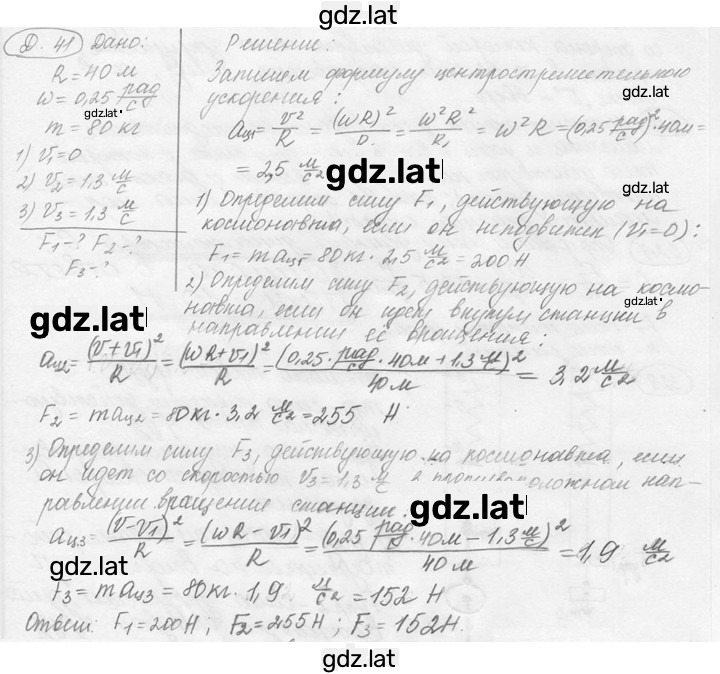 gdz.lat
Д. 41 Дано: Решение:
R = 40 м
ω = 0,25 рад/с
gdz.lat
m = 80 кг
1) v₁ = 0
2) v₂ = 1,3 м/с
3) v₃ = 1,3 м/с
F₁ - ? F₂ - ?
F₃ - ?
Запишем формулу центростремительного
ускорения:
gdz.lat
aц₁ = v²/R = (ωR)²/R = ω²R²/R = ω²R = (0,25 рад/с)² · 40 м =
= 2,5 м/с²
gdz.lat
1) Определим силу F₁, действующую на
космонавта, если он неподвижен (v₁=0):
F₁ = maц₁ = 80 кг · 2,5 м/с² = 200 Н
2) Определим силу F₂, действующую на космо-
навта, если он идет внутри станции в
gdz.lat
направлении её вращения:
gdz.lat
aц₂ = (v+v₁)²/R = (ωR+v₁)²/R = (0,25 · рад/с · 40 м + 1,3 м/с)²/40 м = 3,2 м/с²
F₂ = maц₂ = 80 кг · 3,2 м/с² = 255 Н
3) Определим силу F₃, действующую на космонавта, если
он идет со скоростью v₃ = 1,3 м/с в противоположном нап-
равлении вращение станции.
gdz.lat
aц₃ = (v-v₁)²/R = (ωR - v₁)²/R = (0,25 рад/с · 40 м - 1,3 м/с)²/40 м = 1,9 м/с²
gdz.lat
F₃ = maц₃ = 80 кг · 1,9 м/с² = 152 Н
Ответ: F₁ = 200 Н; F₂ = 255 Н; F₃ = 152 Н.
gdz.lat
gdz.lat